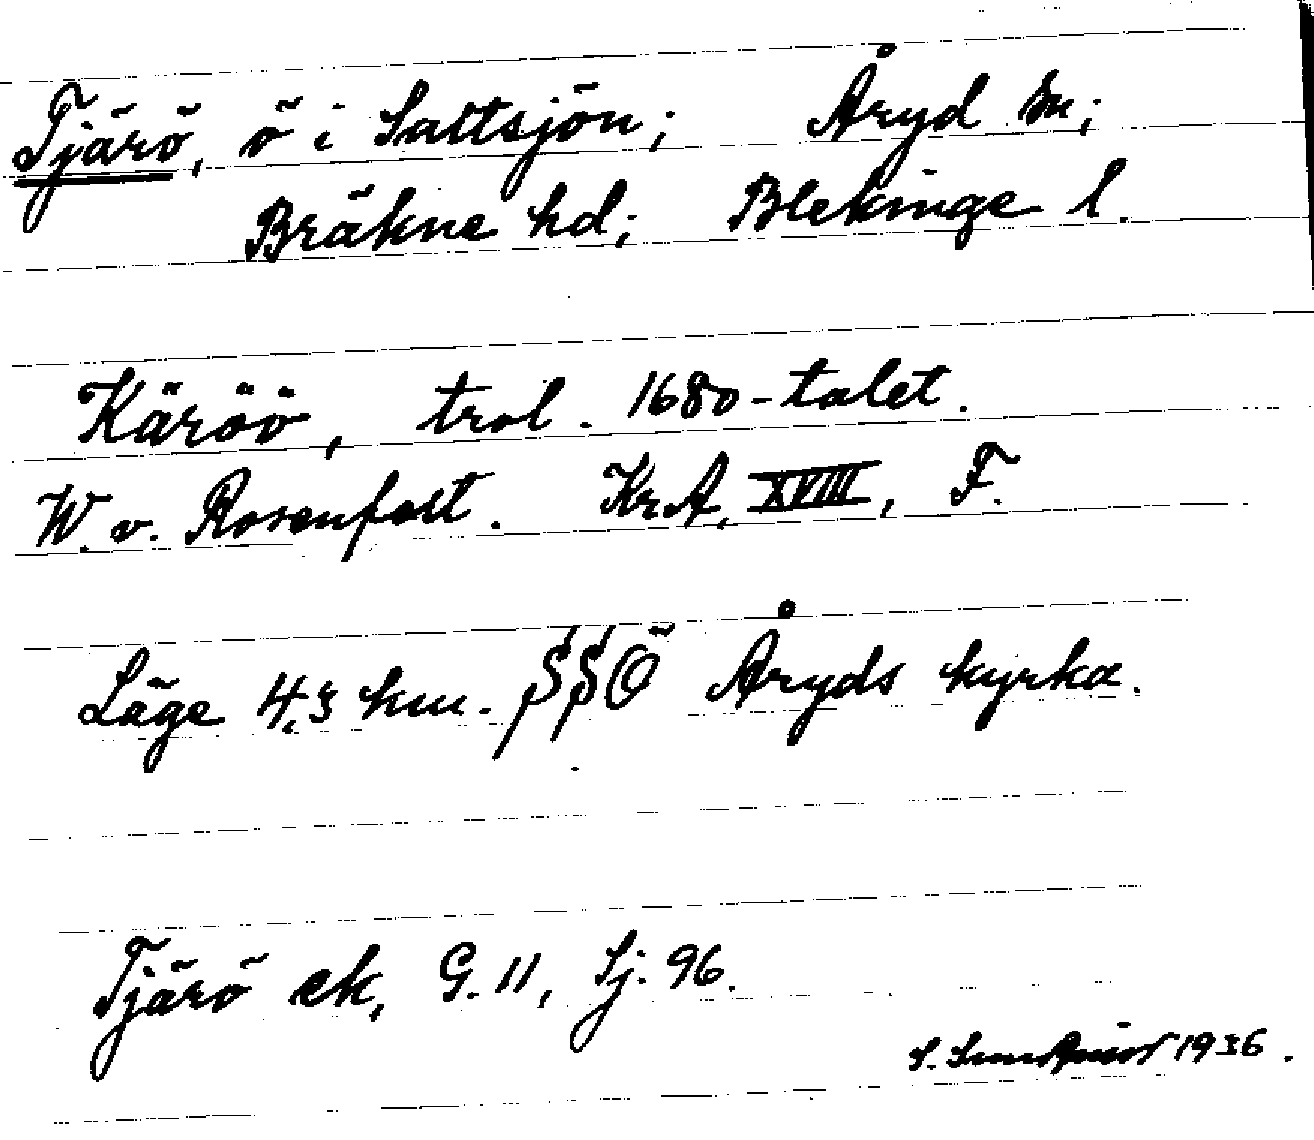 Tjärö, ö i Saltsjön; Åryd sn;
Bräkne hd; Blekinge l.
Käröö, trol. 1680-talet.
W. v. Rosenfelt. KrA, XVIII, F.
Läge 4,3 km. SSÖ Åryds kyrka.
Tjärö ek, G. 11, Sj. 96.
S. 1936.